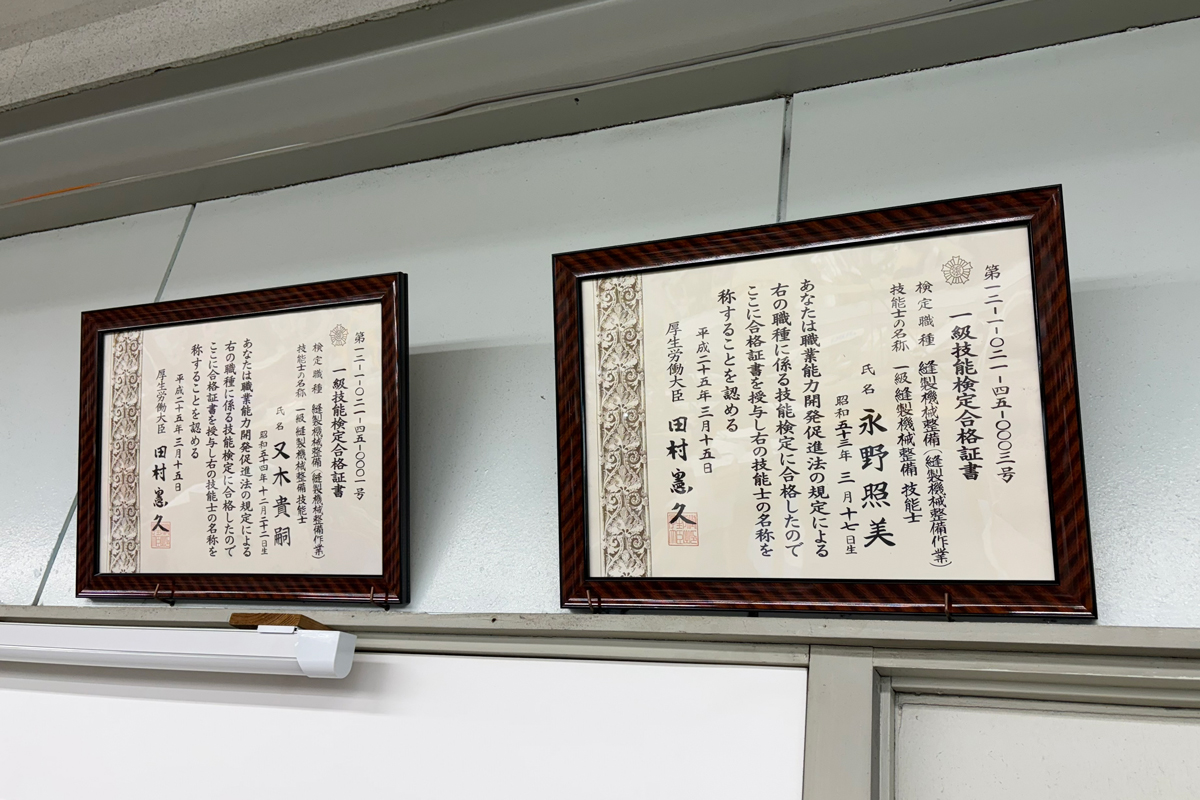 第一二-一-〇二一-四五-〇〇〇三号
一級技能検定合格証書
検定職種 縫製機械整備(縫製機械整備作業)
技能士の名称 一級縫製機械整備技能士
氏名 永野照美
昭和五十三年三月十七日生
あなたは職業能力開発促進法の規定による
右の職種に係る技能検定に合格したので
ここに合格証書を授与し右の技能士の名称を
称することを認める
平成二十五年三月十五日
厚生労働大臣 田村憲久
第一二-一-〇二一-四五-〇〇〇一号
一級技能検定合格証書
検定職種 縫製機械整備(縫製機械整備作業)
技能士の名称 一級縫製機械整備技能士
氏名 又木貴嗣
昭和五十四年十二月二十二日生
あなたは職業能力開発促進法の規定による
右の職種に係る技能検定に合格したので
ここに合格証書を授与し右の技能士の名称を
称することを認める
平成二十五年三月十五日
厚生労働大臣 田村憲久